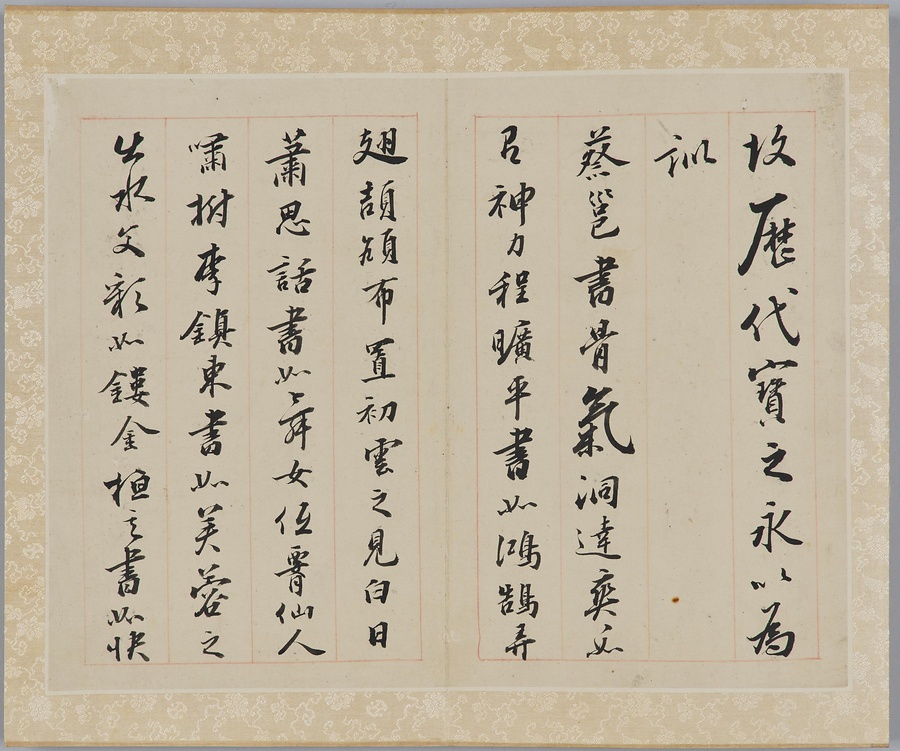 故歷代寶之永以為
訓
蔡邕書骨氣洞達爽爽如
有神力程曠平書如鴻鵠弄
翅頡頏布置初雲之見白日
蕭思話書如舞女低腰仙人
嘯樹李鎮東書如芙蓉之
出水文彩如鏤金桓玄書如快